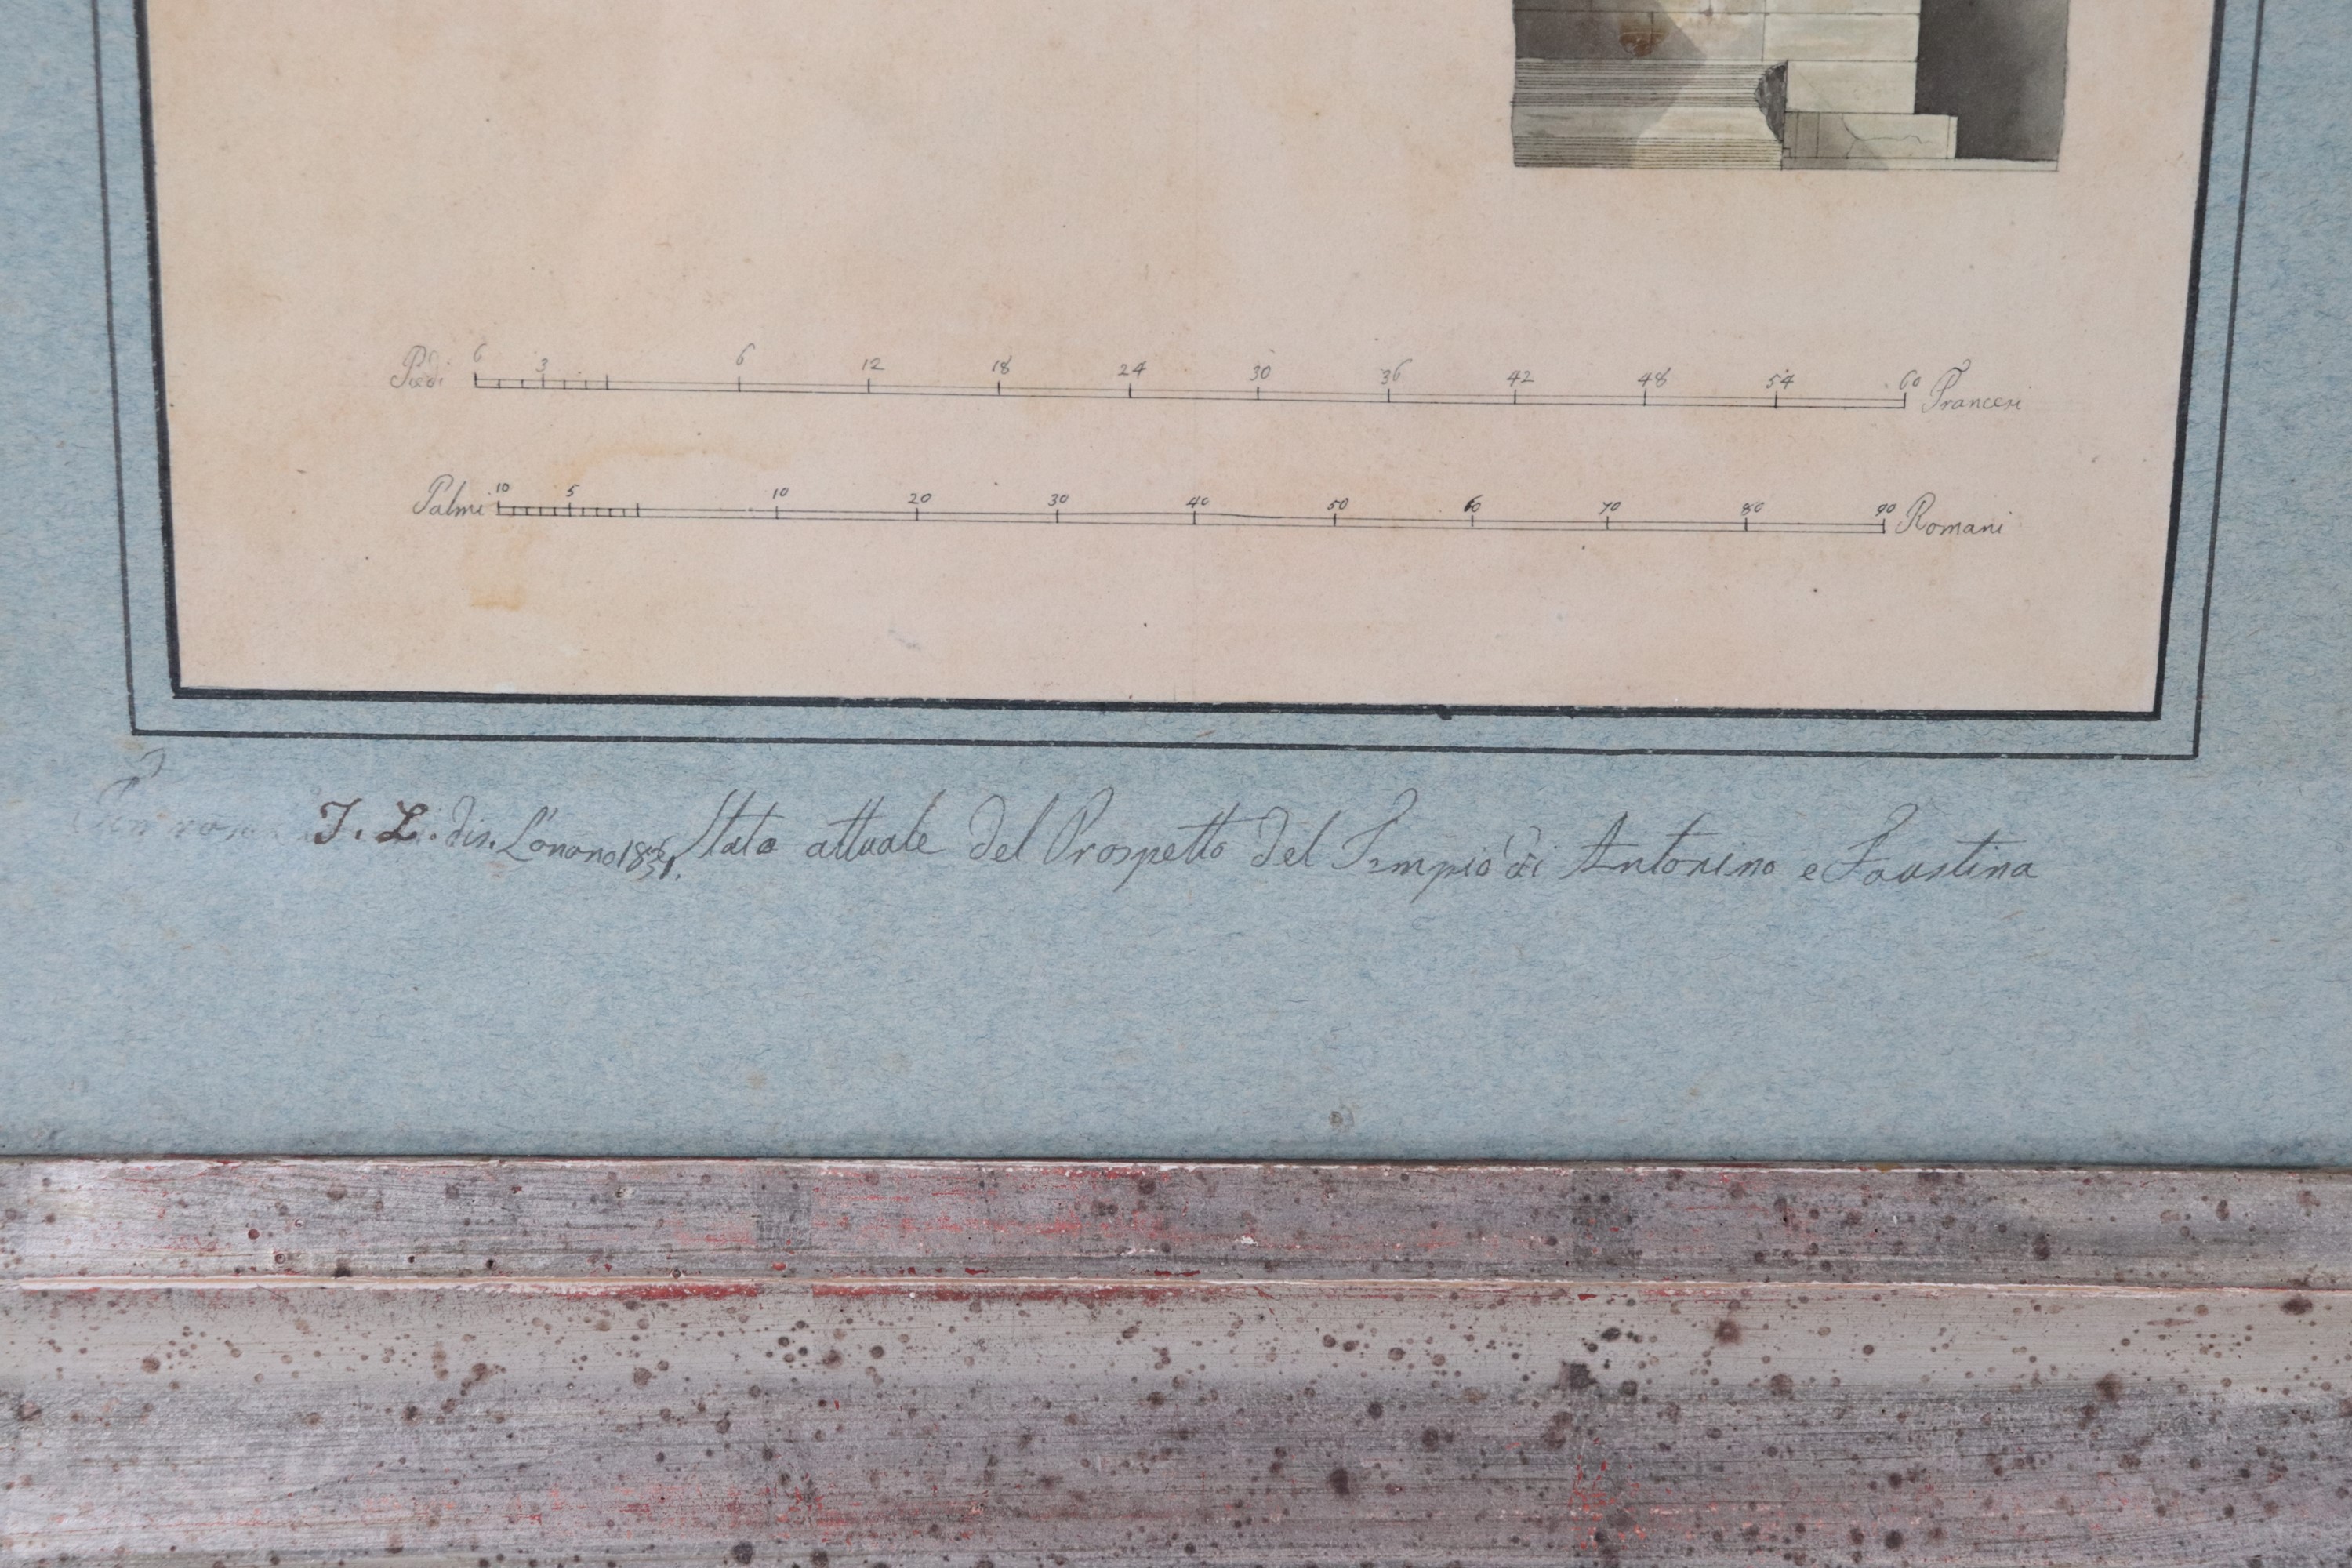 6 3 6 12 18 24 30 36 42 48 54 60
Piedi Francesi
10 5 10 20 30 40 50 60 70 80 90
Palmi Romani
J. L. dis. L'anno 1831. Stato attuale del Prospetto del Tempio di Antonino e Faustina